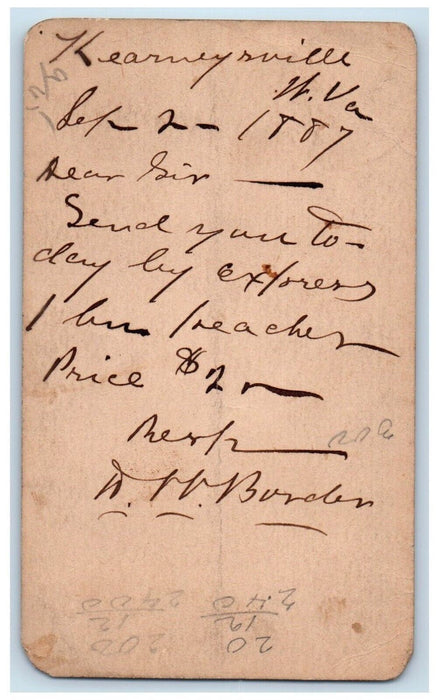 Kearneysville
W. Va
Sep 2 - 1887
Dear Sir
Send you to-
day by express
1 bu peaches
Price $2
Resp
W. Borden
20
12
240
200
12
2400